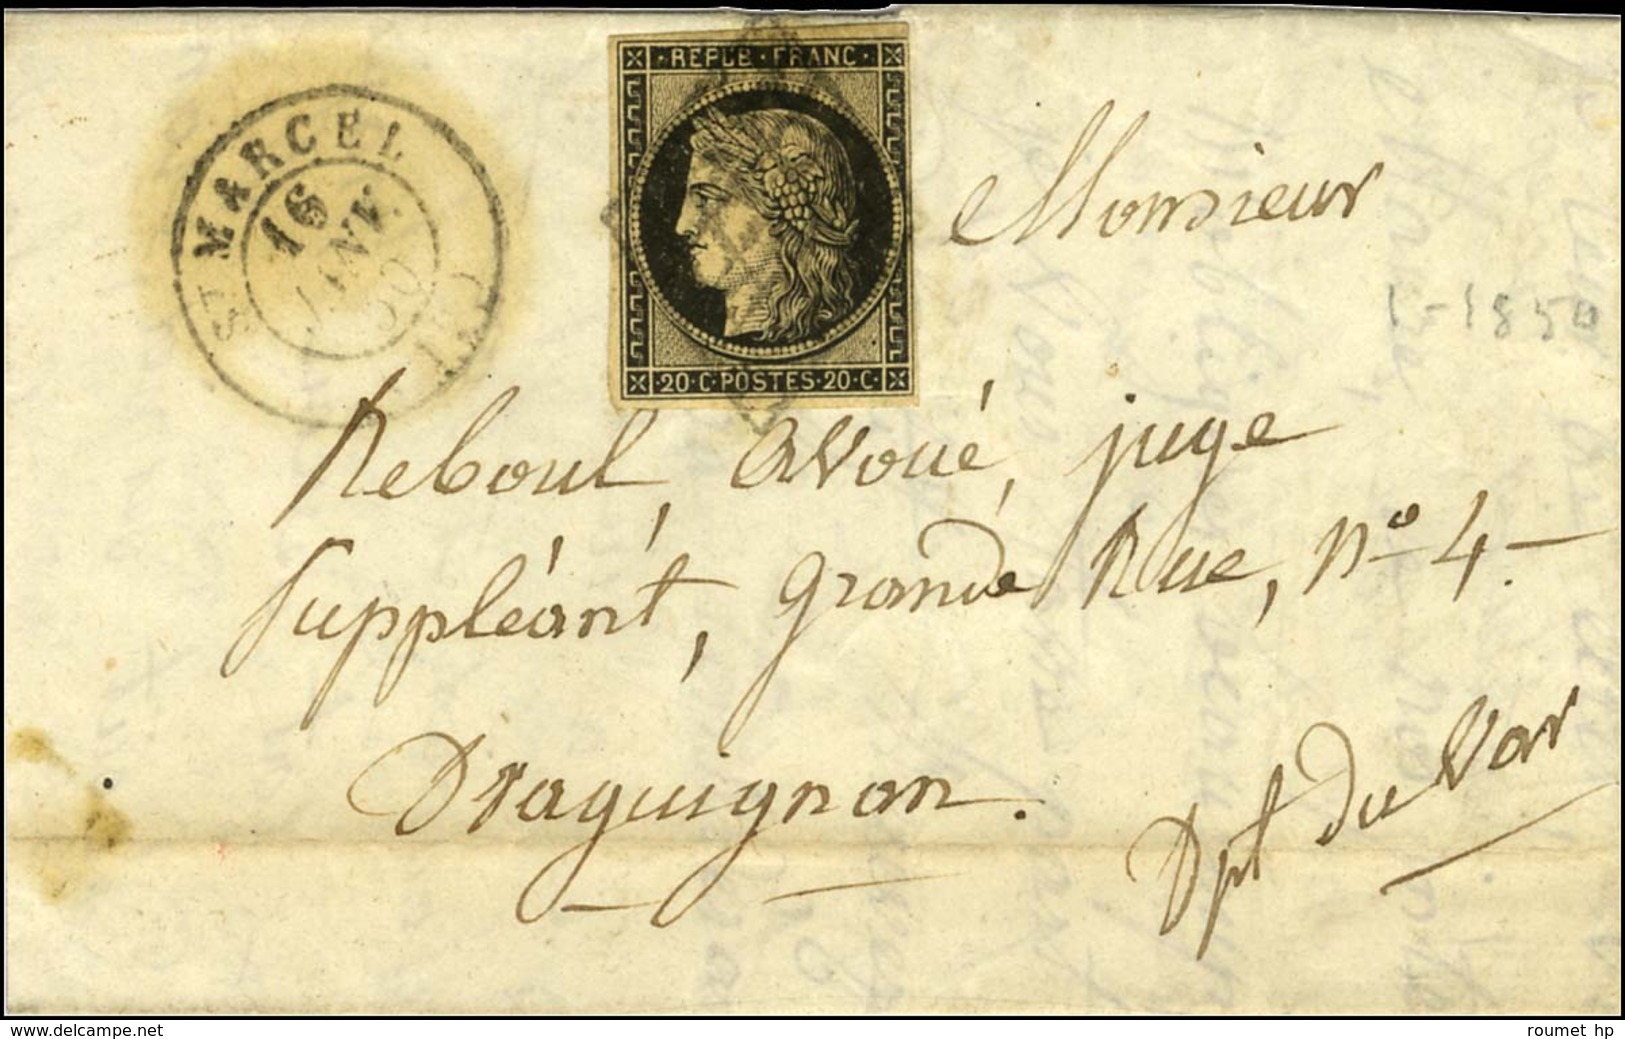 ST MARCEL
16
JANV.
50
REPUB · FRANC ·
· 20 · C · POSTES · 20 · C ·
Monsieur
1-1850
Reboul, avoué, juge
Suppléant, grande Rue, n° 4 -
Draguignan.
Dpt du Var
delcampe.net
roumet hp